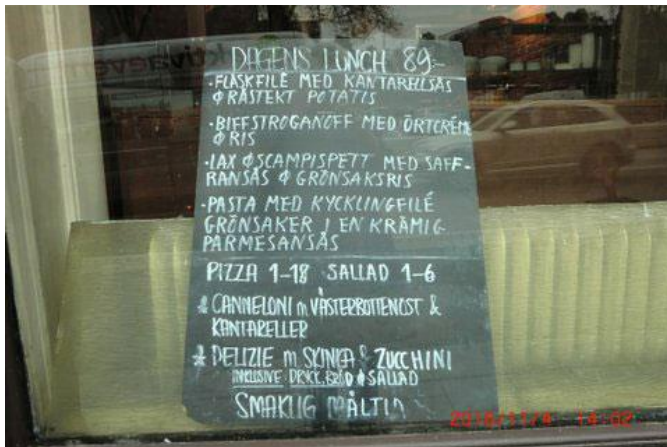 DAGENS LUNCH 89:-
·FLÄSKFILÉ MED KANTARELLSÅS
& RÅSTEKT POTATIS
·BIFFSTROGANOFF MED ÖRTCRÉME
& RIS
·LAX & SCAMPISPETT MED SAFF-
RANSÅS & GRÖNSAKSRIS
·PASTA MED KYCKLINGFILÉ
GRÖNSAKER I EN KRÄMIG
PARMESANSÅS
PIZZA 1-18 SALLAD 1-6
& CANNELONI m VÄSTERBOTTENOST &
KANTARELLER
& DELIZIE m. SKINKA & ZUCCHINI
INKLUSIVE DRICK, BRÖD & SALLAD
SMAKLIG MÅLTID
14:02